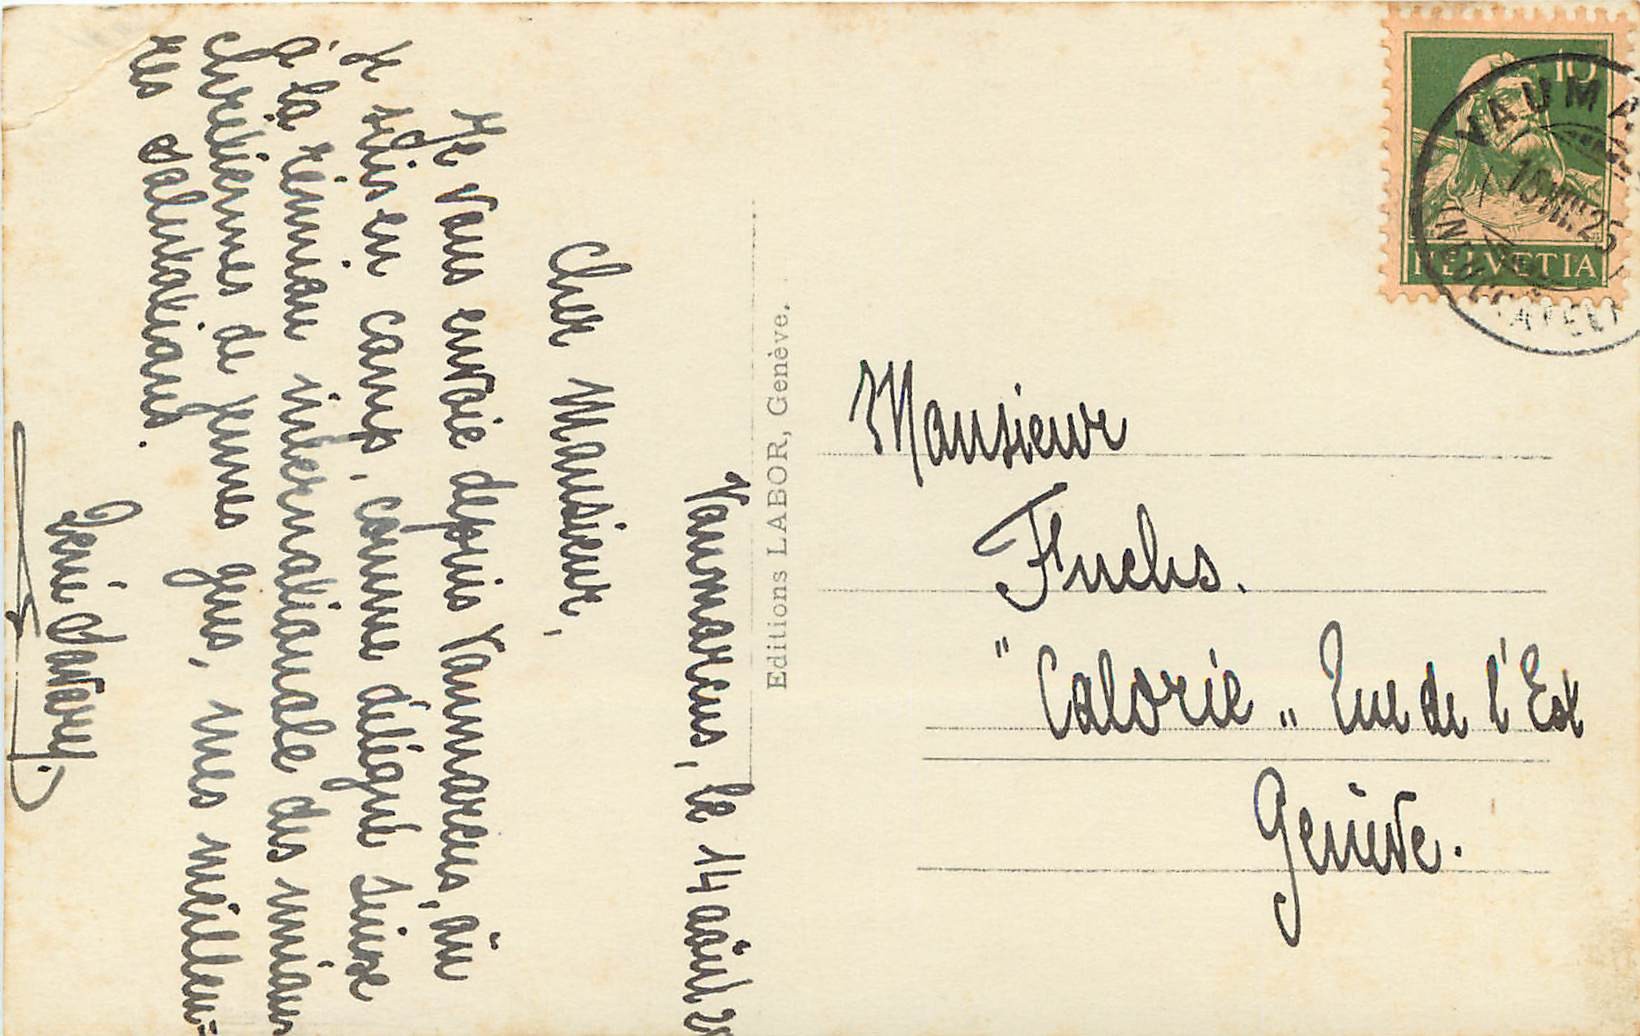 Vaumarcus, le 14 août 2
Cher Monsieur,
Je vous envoie depuis Vaumarcus, où
je suis en camp, comme délégué suisse
à la réunion internationale des unions
chrétiennes de jeunes gens, mes meilleu-
res salutations.
René Savary.
Editions LABOR, Genève.
10
HELVETIA
VAUMAR
VIII.25
(NEUCHATEL)
Monsieur
Fuchs.
"Calorie„ Rue de l'Est
Genève.